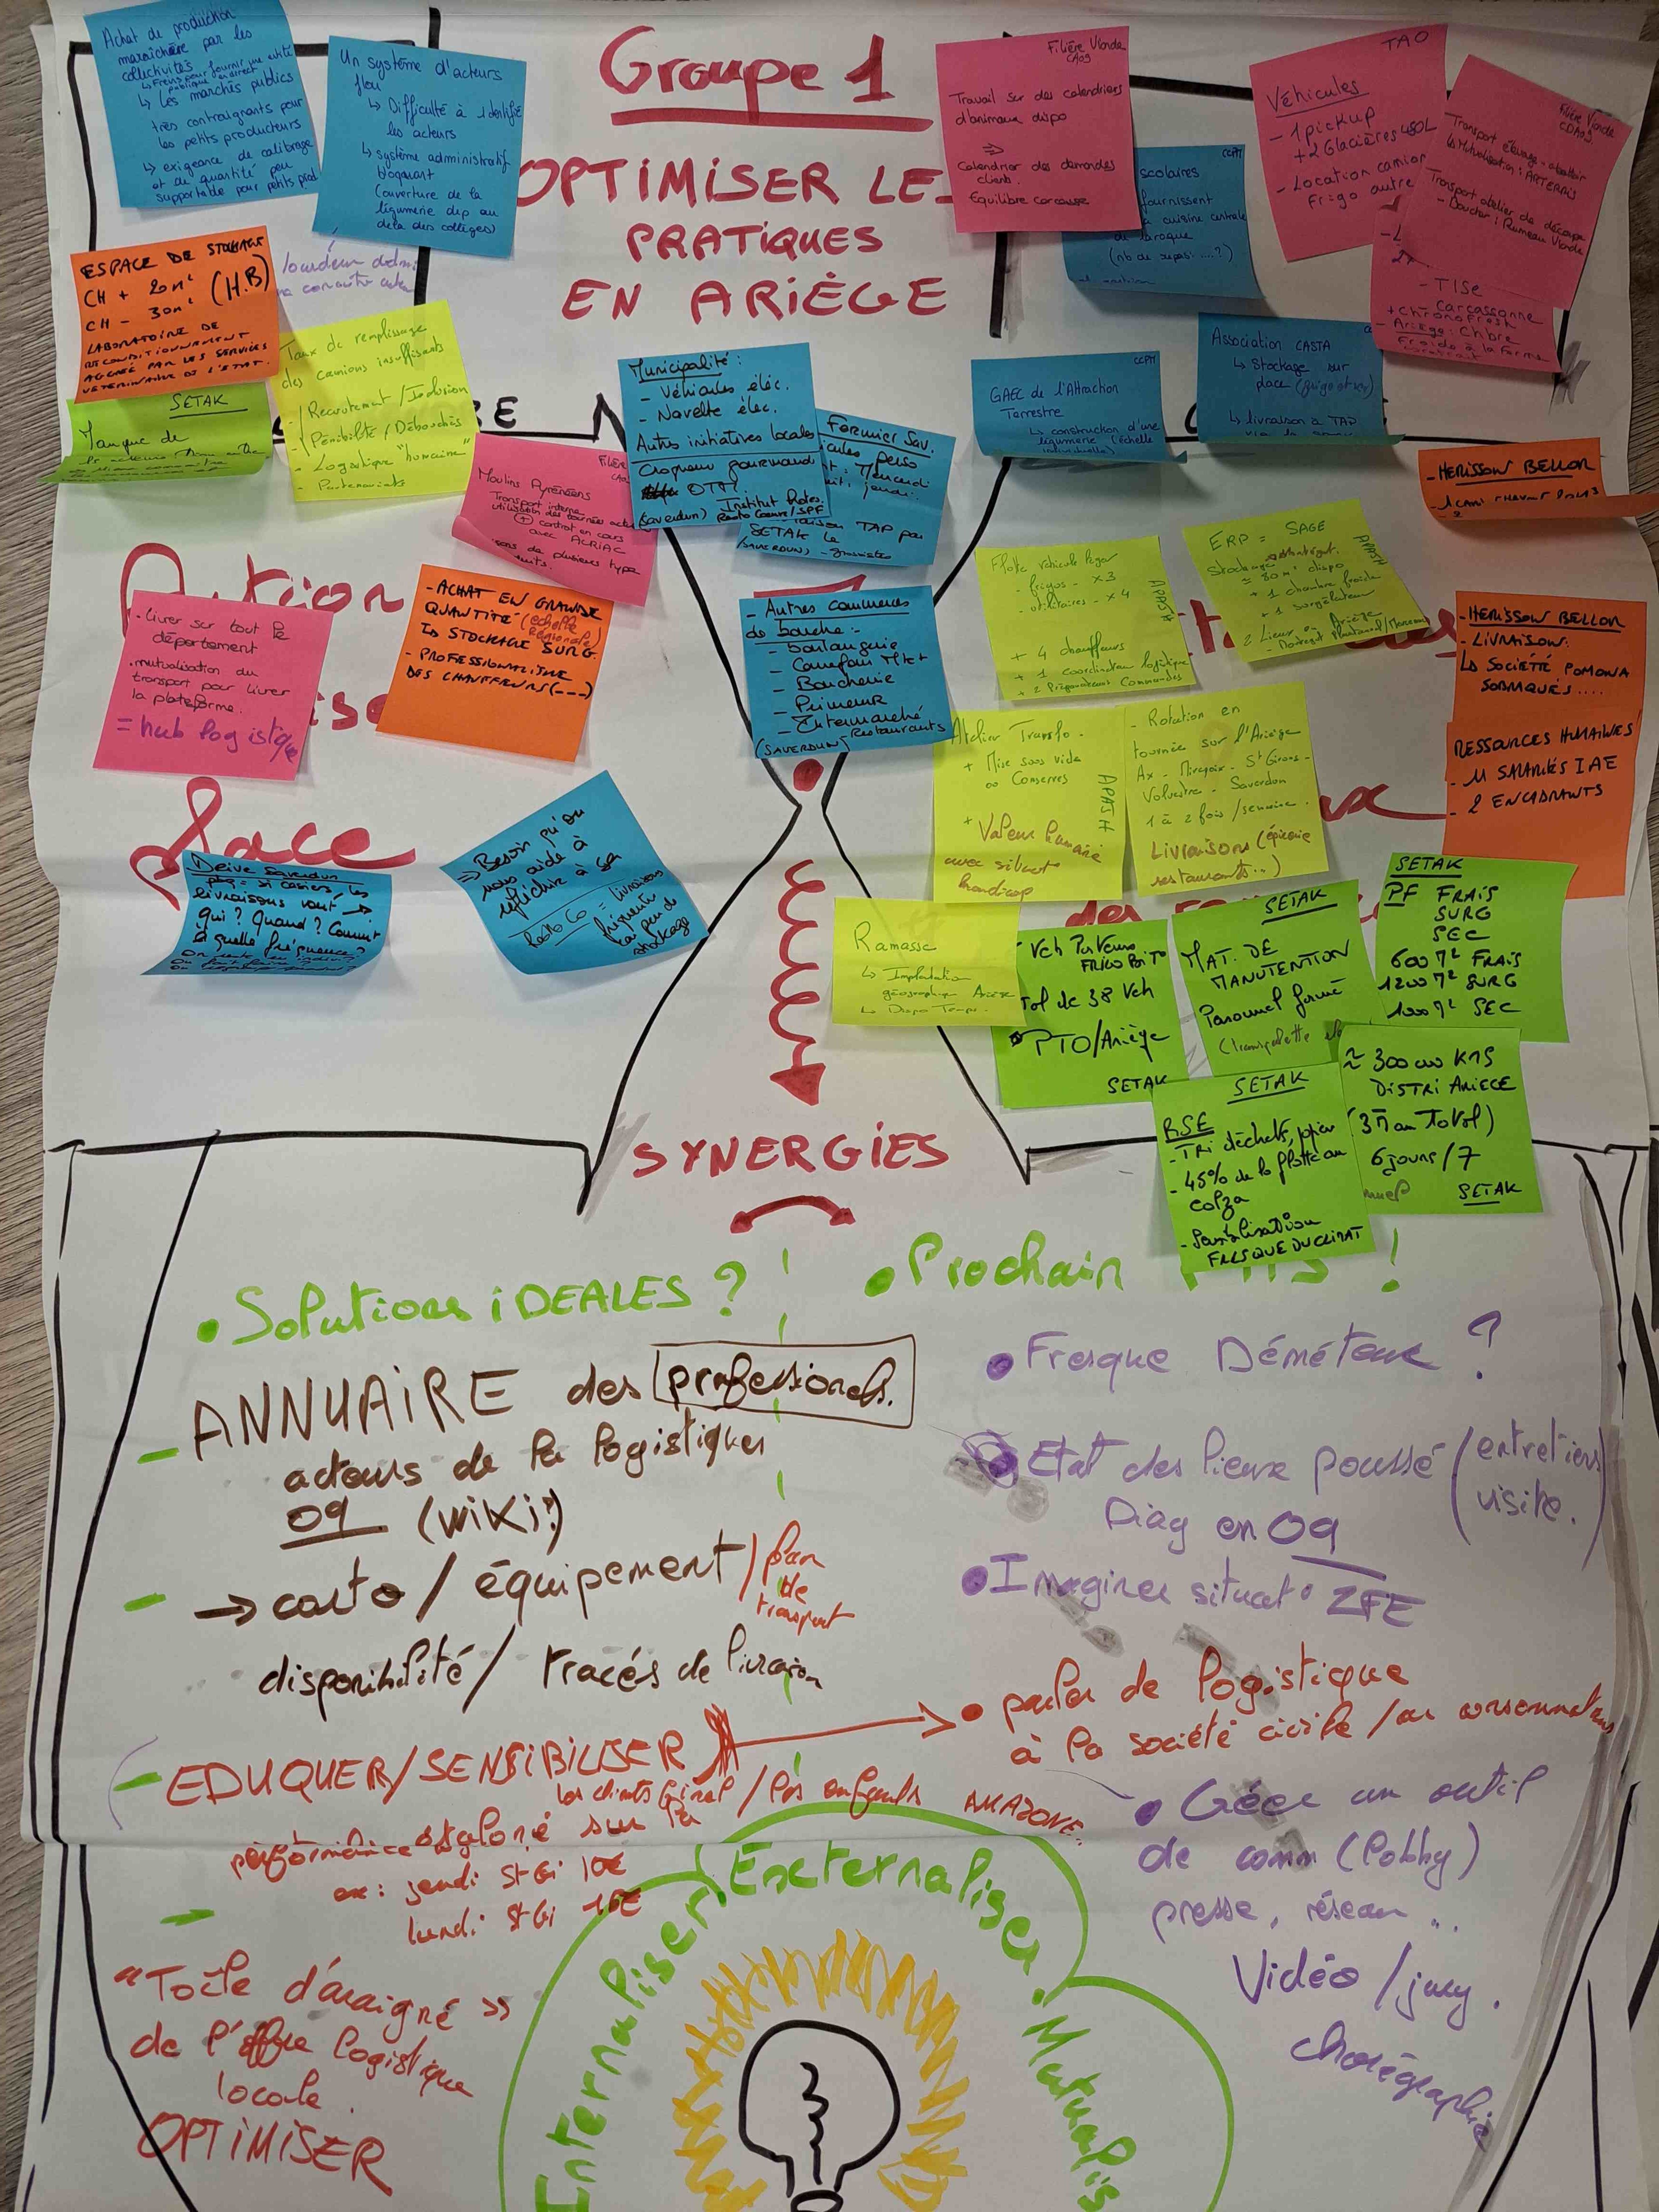 Groupe 1
OPTIMISER LES
PRATIQUES
EN ARIÈGE
Achat de production
maraîchère par les
collectivités
↳ Freins pour fournir une entité
publique en direct
↳ Les marchés publics
très contraignants pour
les petits producteurs
↳ exigeance de calibrage
et de quantité peu
supportable pour petits prod
Un système d'acteurs
flou
↳ Difficulté à identifier
les acteurs
↳ système administratif
bloquant
(ouverture de la
légumerie dep au
delà des collèges)
ESPACE DE STOCKAGE
CH + 20m² (H.B)
CH - 30m²
LABORATOIRE DE
RECONDITIONNEMENT
AGRÉÉ PAR LES SERVICES
VETERINAIRE DE L'ETAT.
Taux de remplissage
des camions insuffisants
Recrutement / Inclusion
Pénibilité / Débouchés
- Logistique "humaine"
- Partenariats
SETAK
Manque de
Filière Viande
CA09
Travail sur des calendriers
d'animaux dispo
⇒
Calendrier des demandes
clients.
Equilibre carcasse
CCPM
scolaires
fournissent
cuisine centrale
de Laroque
(nb de repas ....?)
TAO
Véhicules
- 1 pickup
+ 2 Glacières 450L
- Location camion
Frigo autre
Filière Viande
CDA09
Transport élevage - abattoir
↳ Mutualisation : ARTERRIS
Transport atelier de découpe
- Boucher : Rumeau Viande
- TISE
Carcassonne
+ Chronofresh
- Ariège : Chbre
Froide à la Ferme
Municipalité :
- Véhicules élec.
- Navette élec.
Autres initiatives locales
Croqueur gourmand
OTA.
(Saverdun)
Institut Protes.
Resto Coeur/SPF
Fermier Sav.
perso
Mercredi
jeudi.
TAP par
SETAK le
(SAVERDUN)
CCPM
GAEC de l'Attraction
Terrestre
↳ construction d'une
légumerie (échelle
individuelle)
Association CASTA
↳ Stockage sur
place (frigo et sec)
↳ livraison à TAP
Moulins Pyrénéens
Transport interne
utilisation des tournées
+ contrat en cours
avec ACRIAC
de plusieurs type
- HERISSON BELLOR
- ACHAT EN GRANDE
QUANTITÉ (échelle
Régionale)
↳ STOCKAGE SURG.
- PROFESSIONNALISME
DES CHAUFFEURS (---)
- Livrer sur tout le
département
- mutualisation du
transport pour livrer
la plateforme.
= hub logistique
Action
place
- Autres commerces
de bouche :
- boulangerie
- Carrefour Mket
- Boucherie
- Primeur
- Intermarché
- Restaurants
(SAVERDUN)
Flotte véhicule léger
- frigos - x3
- utilitaires - x4
+ 4 chauffeurs
+ 1 coordinateur logistique
+ 2 Préparateurs Commandes
APASH
ERP = SAGE
Stockage
≃ 80 m² dispo
+ 1 chambre froide
+ 1 surgélateur
2 Lieux en Ariège
APASH
- HERISSON BELLOR
- LIVRAISON :
↳ SOCIÉTÉ POMONA
SOBRAQUÉS....
RESSOURCES HUMAINES
- 11 SALARIÉS IAE
- 2 ENCADRANTS
Atelier Transfo.
+ Mise sous vide
Conserves
+ Valeur humaine
avec situat°
handicap
APASH
- Rotation en
tournée sur l'Ariège
Ax - Mirepoix - St Girons -
Volvestre - Saverdun
1 à 2 fois / semaine.
Livraisons (épicerie
restaurants...)
Drive Saverdun
pbq = si casiers, les
livraisons vont →
qui ? Quand ? Comment
à quelle fréquence ?
⇒ Besoin qu'on
nous aide à
réfléchir à ça
Resto Co = livraisons
fréquentes
car peu de
stockage
Ramasse
↳ Implantation
géographique Ariège
↳ Dispo Temps.
Veh Porteurs
FRIGO
38 Veh
PTO/Ariège
SETAK
SETAK
MAT. DE
MANUTENTION
Personnel formé
SETAK
PF FRAIS
SURG
SEC
600 M² FRAIS
1200 M² SURG
1000 M² SEC
SETAK
RSE
- TRI déchets, papier
- 45% de la flotte au
colza
- Sensibilisation
FRESQUE DU CLIMAT
≈ 300 000 KMS
DISTRI ARIEGE
(3M au Total)
6 jours / 7
SETAK
SYNERGIES
• Solutions iDEALES ?
- ANNUAiRE des professionels.
acteurs de la logistique
09 (wiki?)
- → carto / équipement / plan
de
transport
disponibilité / Tracés de livraison
- EDUQUER/SENSIBILISER
les clients final / les enfants AMAZONE..
performance
ex : jeudi St Gi 10€
lundi St Gi
- "Toile d'araigné"
de l'offre logistique
locale
OPTIMISER
• Prochain !
• Fresque Déméteur ?
• Etat des lieux poussé (entretiens/
visite.)
Diag en 09
• Imaginer situat° ZFE
• parler de logistique
à la société civile / au consommateurs
• Créer un outil
de comm (lobby)
presse, réseau...
Vidéo / jury.
chorégraphie
Internaliser. Externaliser. Mutualis